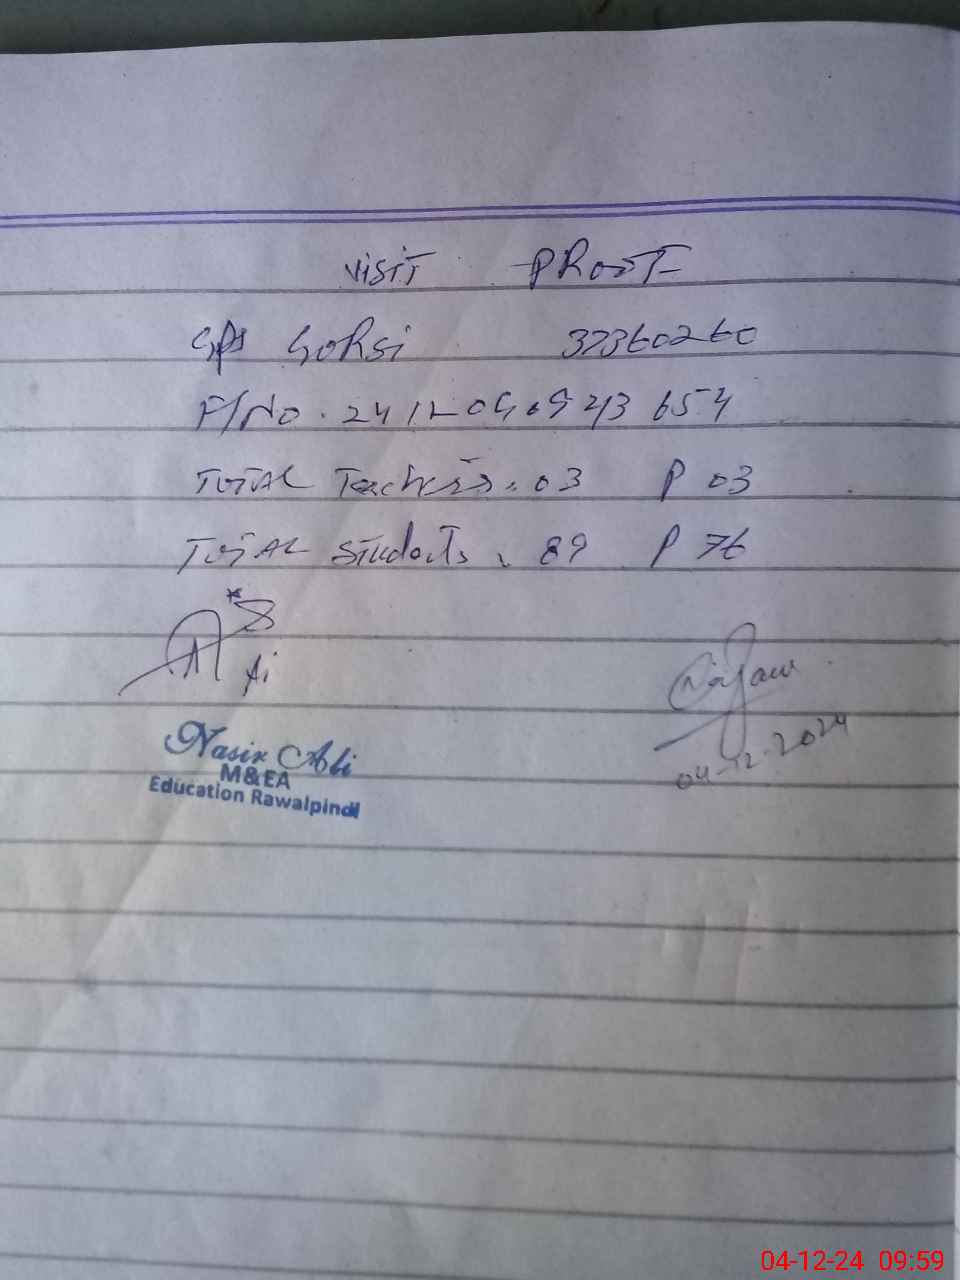 VISIT PROOF
GPS GORSI 37360260
F/NO. 2412040943654
TOTAL Teachers. 03 P 03
TOTAL Students. 89 P 76
04-12-2024
Nasir Ali
M&EA
Education Rawalpindi
04-12-24 09:59